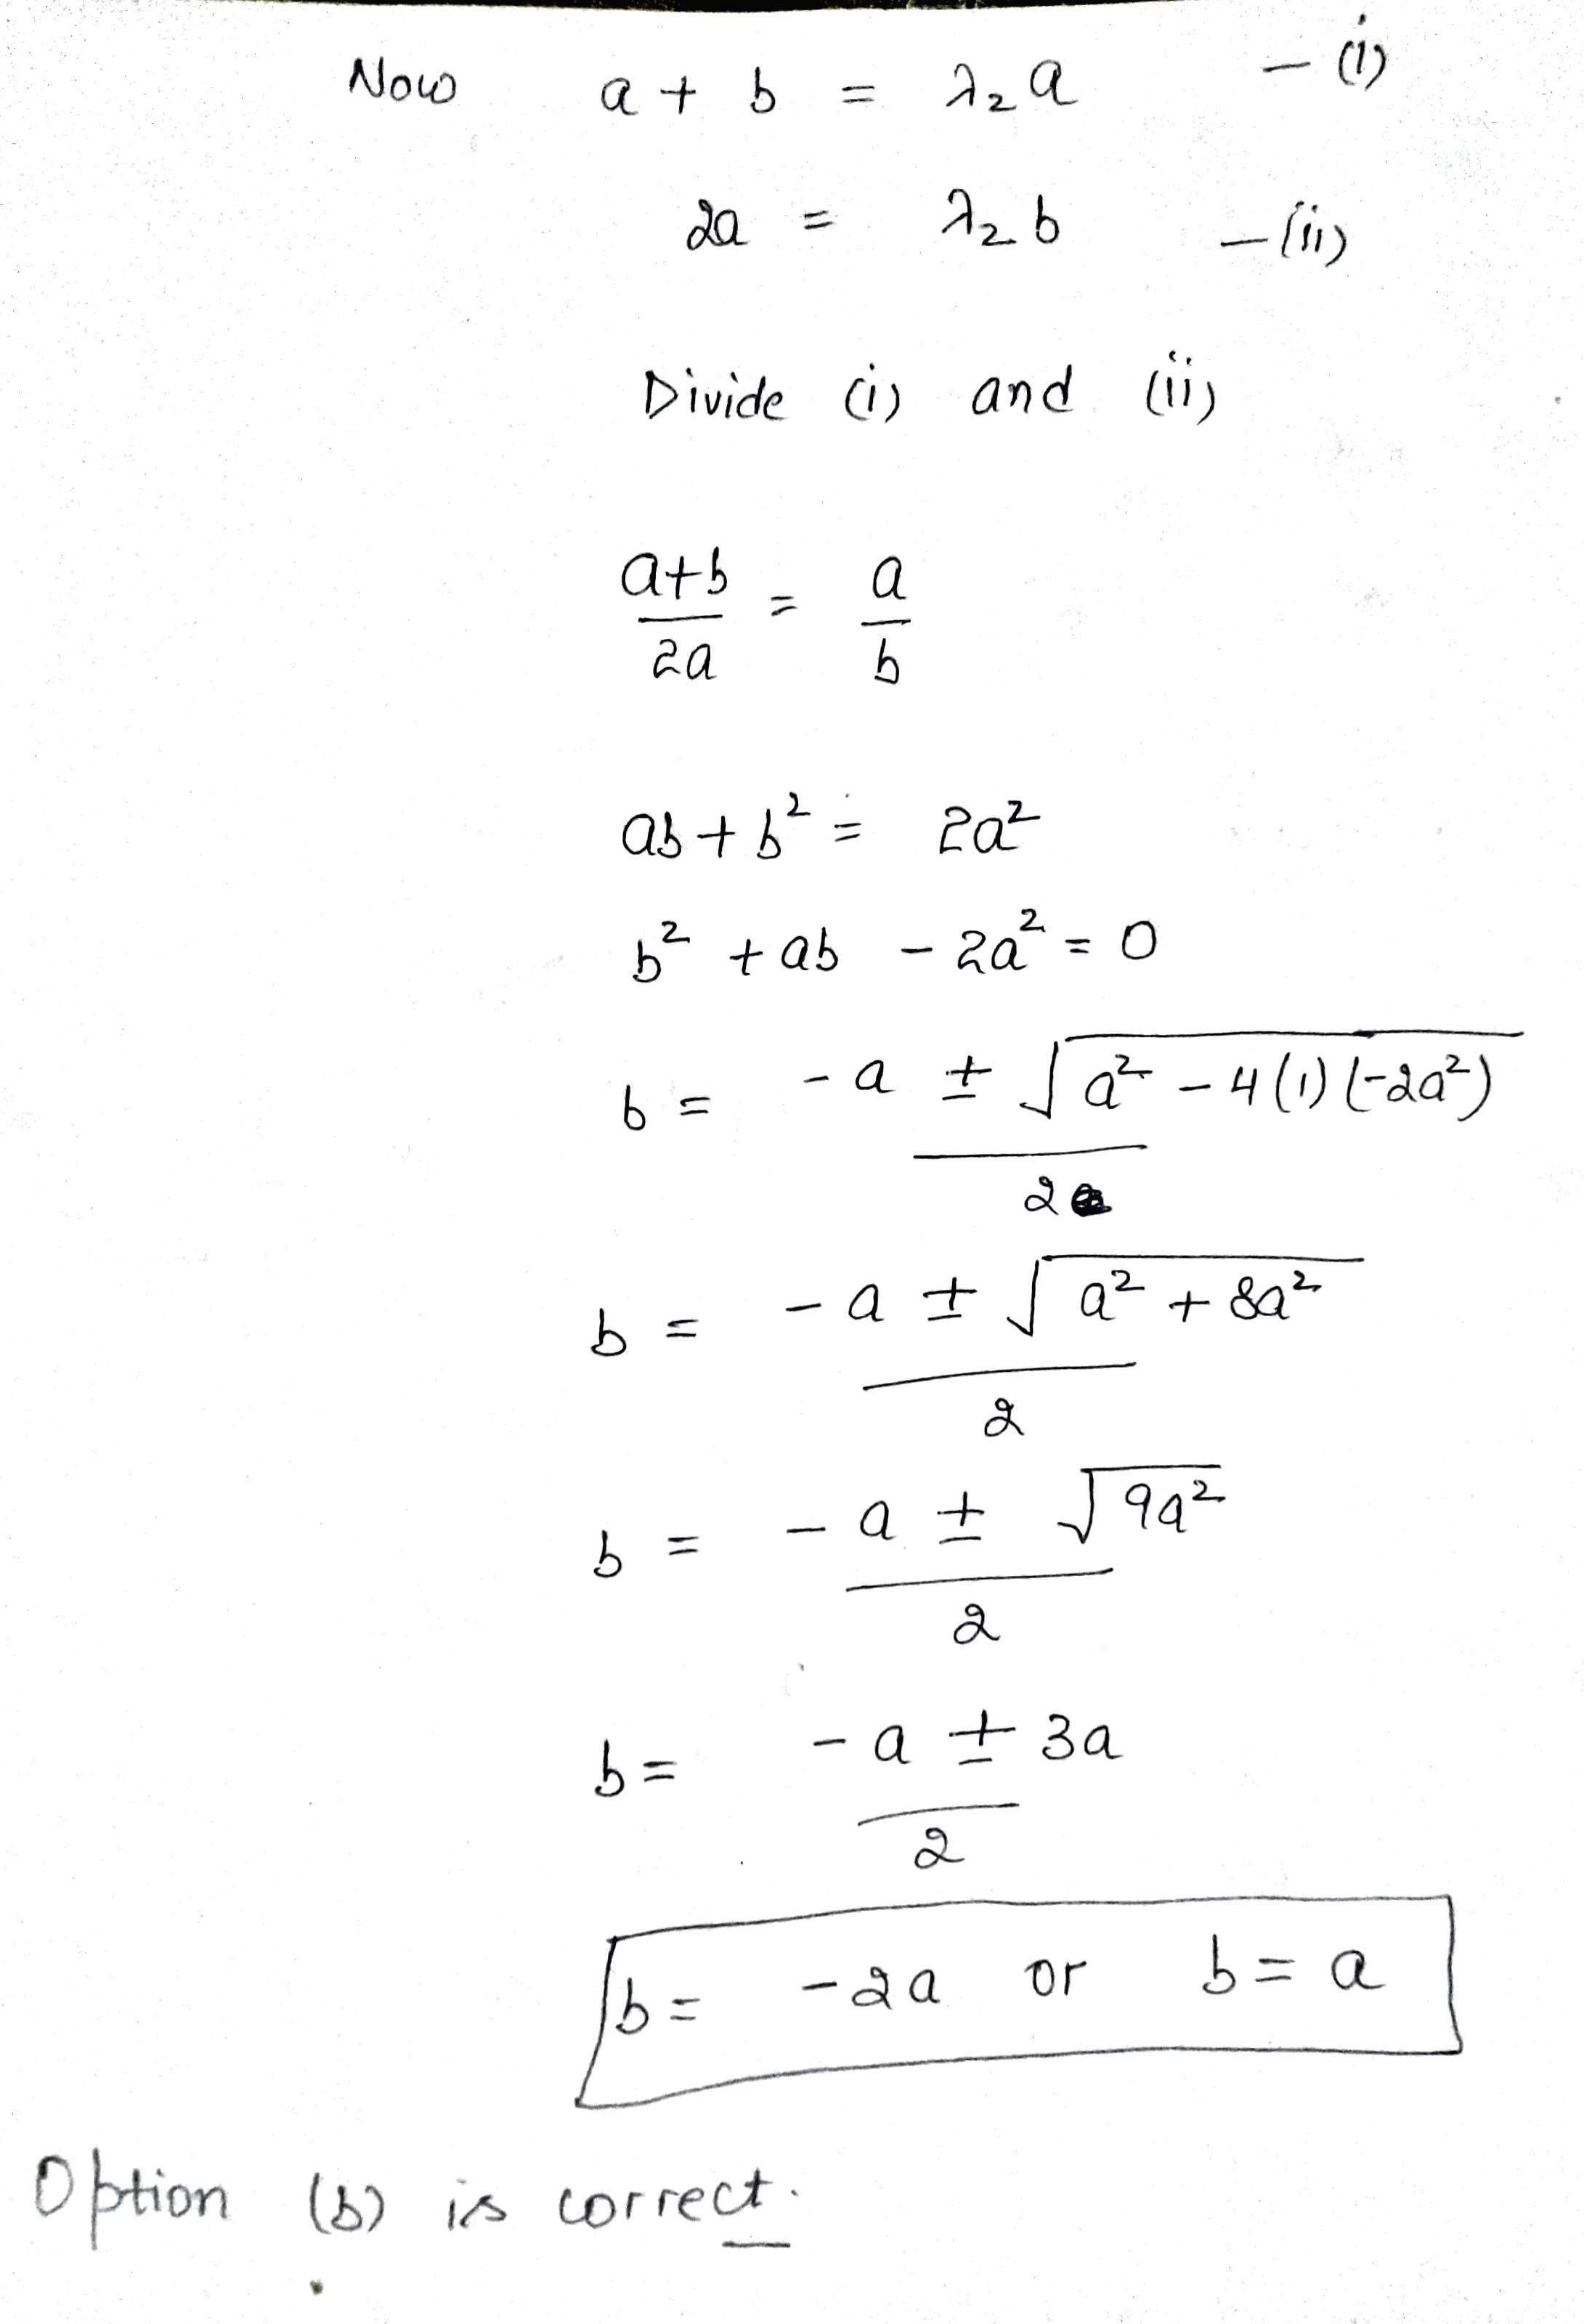 Now a + b = λ₂ a — (i)
2a = λ₂ b — (ii)
Divide (i) and (ii)
a+b / 2a = a / b
ab + b² = 2a²
b² + ab - 2a² = 0
b = -a ± √(a² - 4(1)(-2a²)) / 2
b = -a ± √(a² + 8a²) / 2
b = -a ± √(9a²) / 2
b = -a ± 3a / 2
b = -2a or b = a
Option (b) is correct.